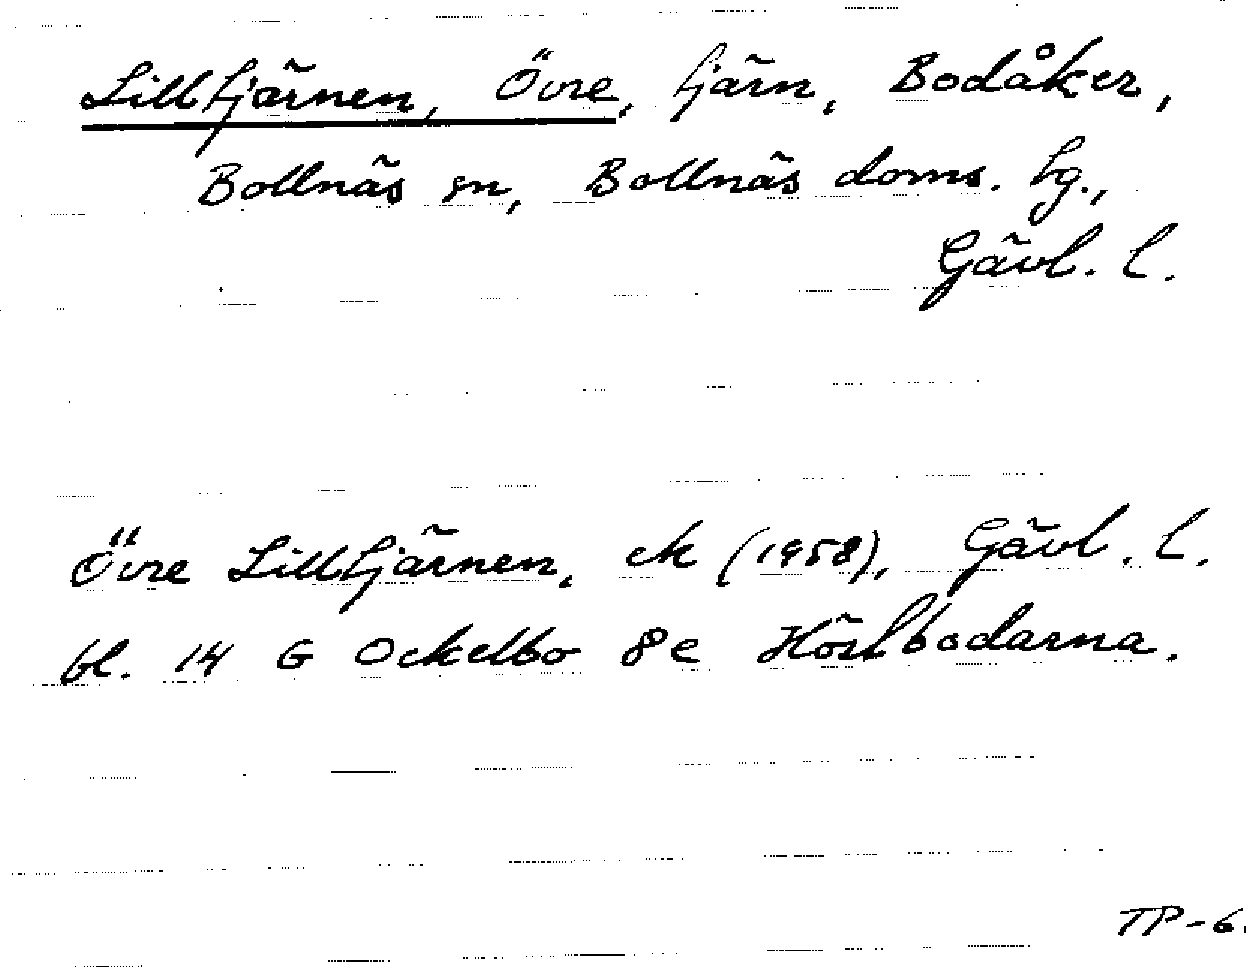 Lilltjärnen, Övre, tjärn, Bodåker,
Bollnäs sn, Bollnäs doms. tg.,
Gävl. l.
Övre Lilltjärnen, ek (1958), Gävl. l.
bl. 14 G Ockelbo 8e Höslbodarna.
TP-6.